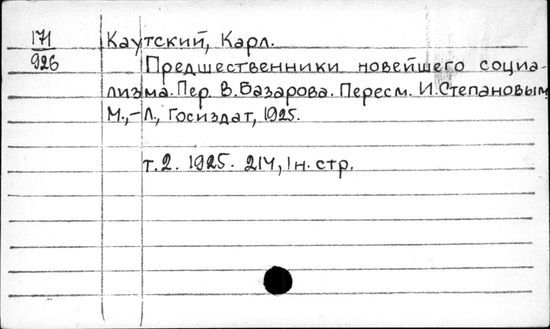 171
926
Каутский, Карл.
Предшественники новейшего социа-
лизма. Пер. В. Базарова. Пересм. И. Степановым
М.,-Л., Госиздат, 1925.
т. 2. 1925. 214, 1 н. стр.